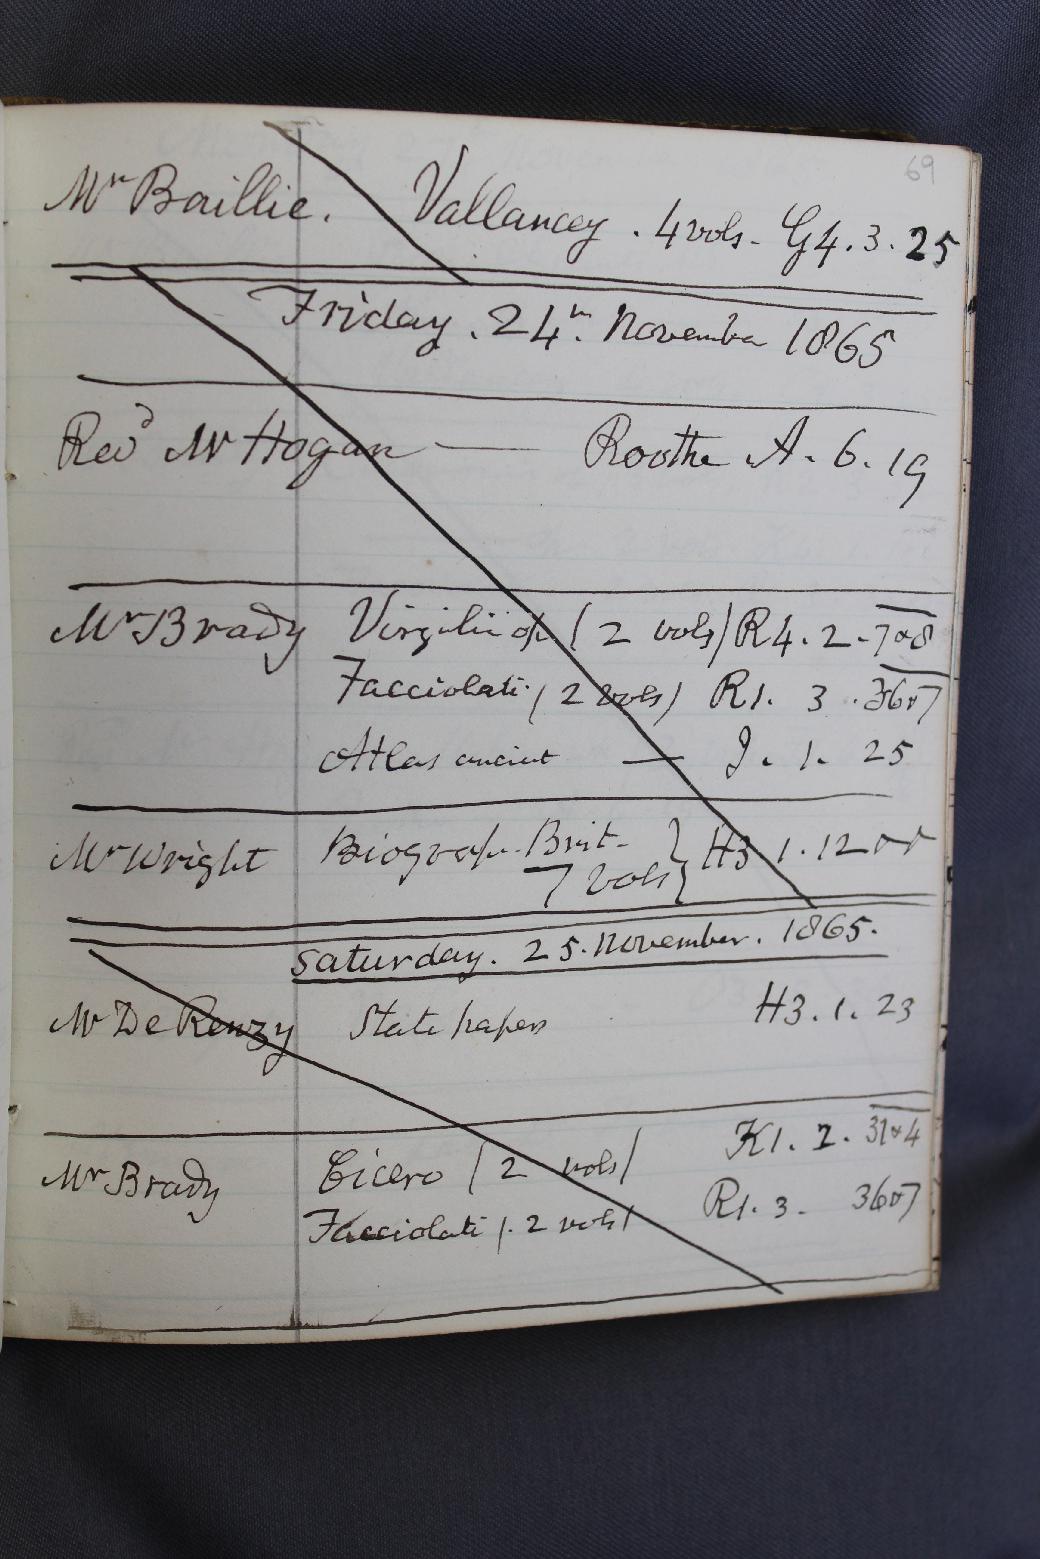 69
Mr Baillie. Vallancey. 4 vols - G4. 3. 25
Friday. 24th. November 1865
Revd Mr Hogan — Roothe A. 6. 19
Mr Brady Virgilii op (2 vols) R4. 2. 7&8
Facciolati (2 vols) R1. 3. 36&7
Atlas ancient — J. 1. 25
Mr Wright Biograph. Brit- } H3 1. 12
7 vols
Saturday. 25. November. 1865.
Mr De Renzy State papers H3. 1. 23
Mr Brady Cicero (2 vols) K1. 2. 31&4
Facciolati (2 vols) R1. 3. 36&7